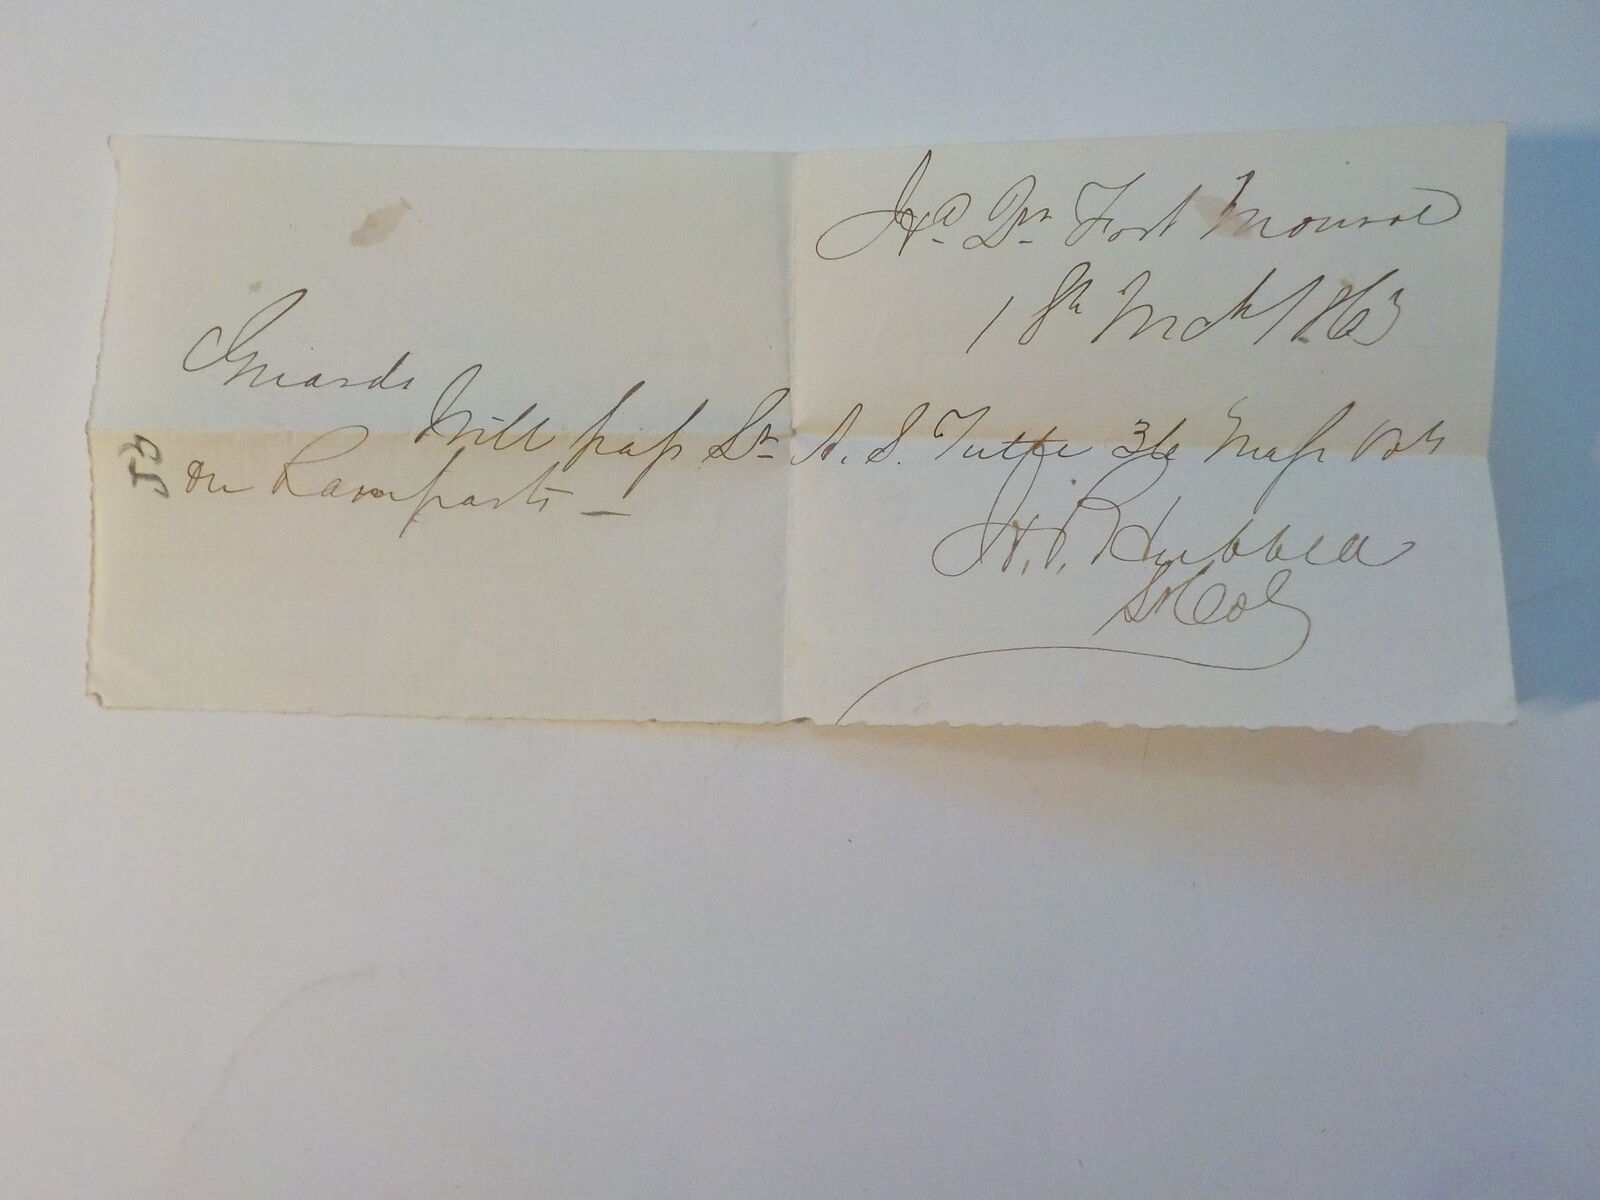 Hd Qrs Fort Monroe
18th Mch 1863
Guards
Will pass Lt A. S. Tuttle 36 Mass Vols
on Ramparts –
Lt Col